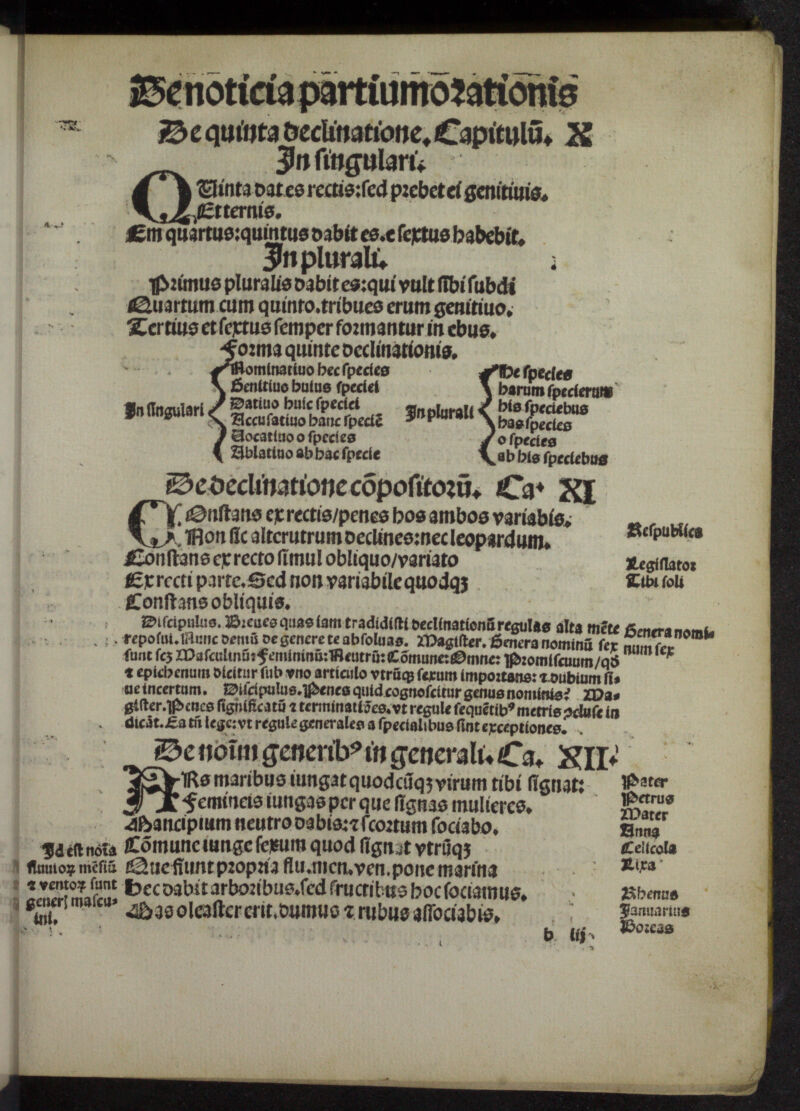 De noticia partiū orationis
De quinta declinatione. Capitulū. X
In singulari.
QUinta dat es rectis: sed prebet ei genitiuis.
Et ternis.
Em quartus: quintus dabit es. e sextus habebit.
In plurali.
Primus pluralis dabit es: qui vult sibi subdi
Quartum cum quinto. tribues erum genitiuo.
Tertius et sextus semper formantur in ebus.
Forma quinte declinationis.
In singulari
Nominatiuo hec species
Genitiuo huius speciei
Datiuo huic speciei
Accusatiuo hanc speciē
Uocatiuo o species
Ablatiuo ab hac specie
In plurali
He species
harum specierum
his speciebus
has species
o species
ab his speciebus
De declinatione cōpositorū. Ca. XI
COnstans ex rectis/penes hos ambos variabis.
Non sic alterutrum declines: nec leopardum.
Respublica
Constans ex recto simul obliquo/variato
Legislator
Ex recti parte. Sed non variabile quodqꝫ
Tibi soli
Constans obliquis.
Discipulus. Breues quas iam tradidisti declinationū regulas alta mēte
Genera nomi-
reposui. Nunc demū de genere te absoluas. Magister. Genera nominū sex
num sex
sunt scꝫ Masculinū: Femininū: Neutrū: Cōmune: Omne: Promiscuum/qđ
⁊ epichenum dicitur sub vno articulo vtrūqꝫ sexum importans: ⁊ dubium si-
ue incertum. Discipulus. Penes quid cognoscitur genus nominis? Ma-
gister. Penes significatū ⁊ terminatiōes. vt regule sequētibꝰ metris ꝓcluse in
dicāt. Ea tñ lege: vt regule generales a specialibus sint exceptiones.
De noīm generibꝰ in generali. Ca. XII.
ARs maribus iungat quodcūqꝫ virum tibi signat:
Pater
Femineis iungas per que signas mulieres.
Petrus
Mater
Mancipium neutro dabis: ⁊ scortum sociabo.
Anna
Id est nota
Cōmune iunge sexum quod signat vtrūqꝫ
Celicola
fluuioꝝ mēsiū
Que fiunt propria flu. men. ven. pone marina
Lixa
⁊ ventoꝝ sunt
Hec dabit arboribus. sed fructibus hoc sociamus.
Rhenus
generꝭ mascu-
lini.
Mas oleaster erit. dumus ⁊ rubus associabis.
Januarius
Boreas
b iij